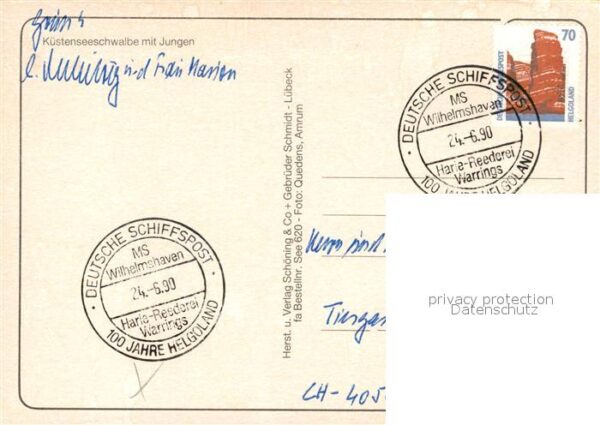 Küstenseeschwalbe mit Jungen
und Frau Marion
Herst. u. Verlag Schöning & Co + Gebrüder Schmidt - Lübeck
fa Bestellnr. See 620 - Foto: Quedens, Amrum
70
DEUTSCHE BUNDESPOST
HELGOLAND
DEUTSCHE SCHIFFSPOST
MS
Wilhelmshaven
24.-6.90
Harle-Reederei
Warrings
100 JAHRE HELGOLAND
DEUTSCHE SCHIFFSPOST
MS
Wilhelmshaven
24.-6.90
Harle-Reederei
Warrings
100 JAHRE HELGOLAND
privacy protection
Datenschutz
CH-405